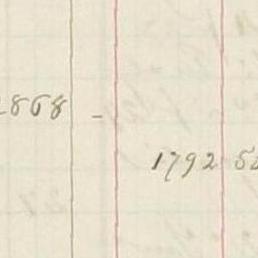 868 -
1792 5